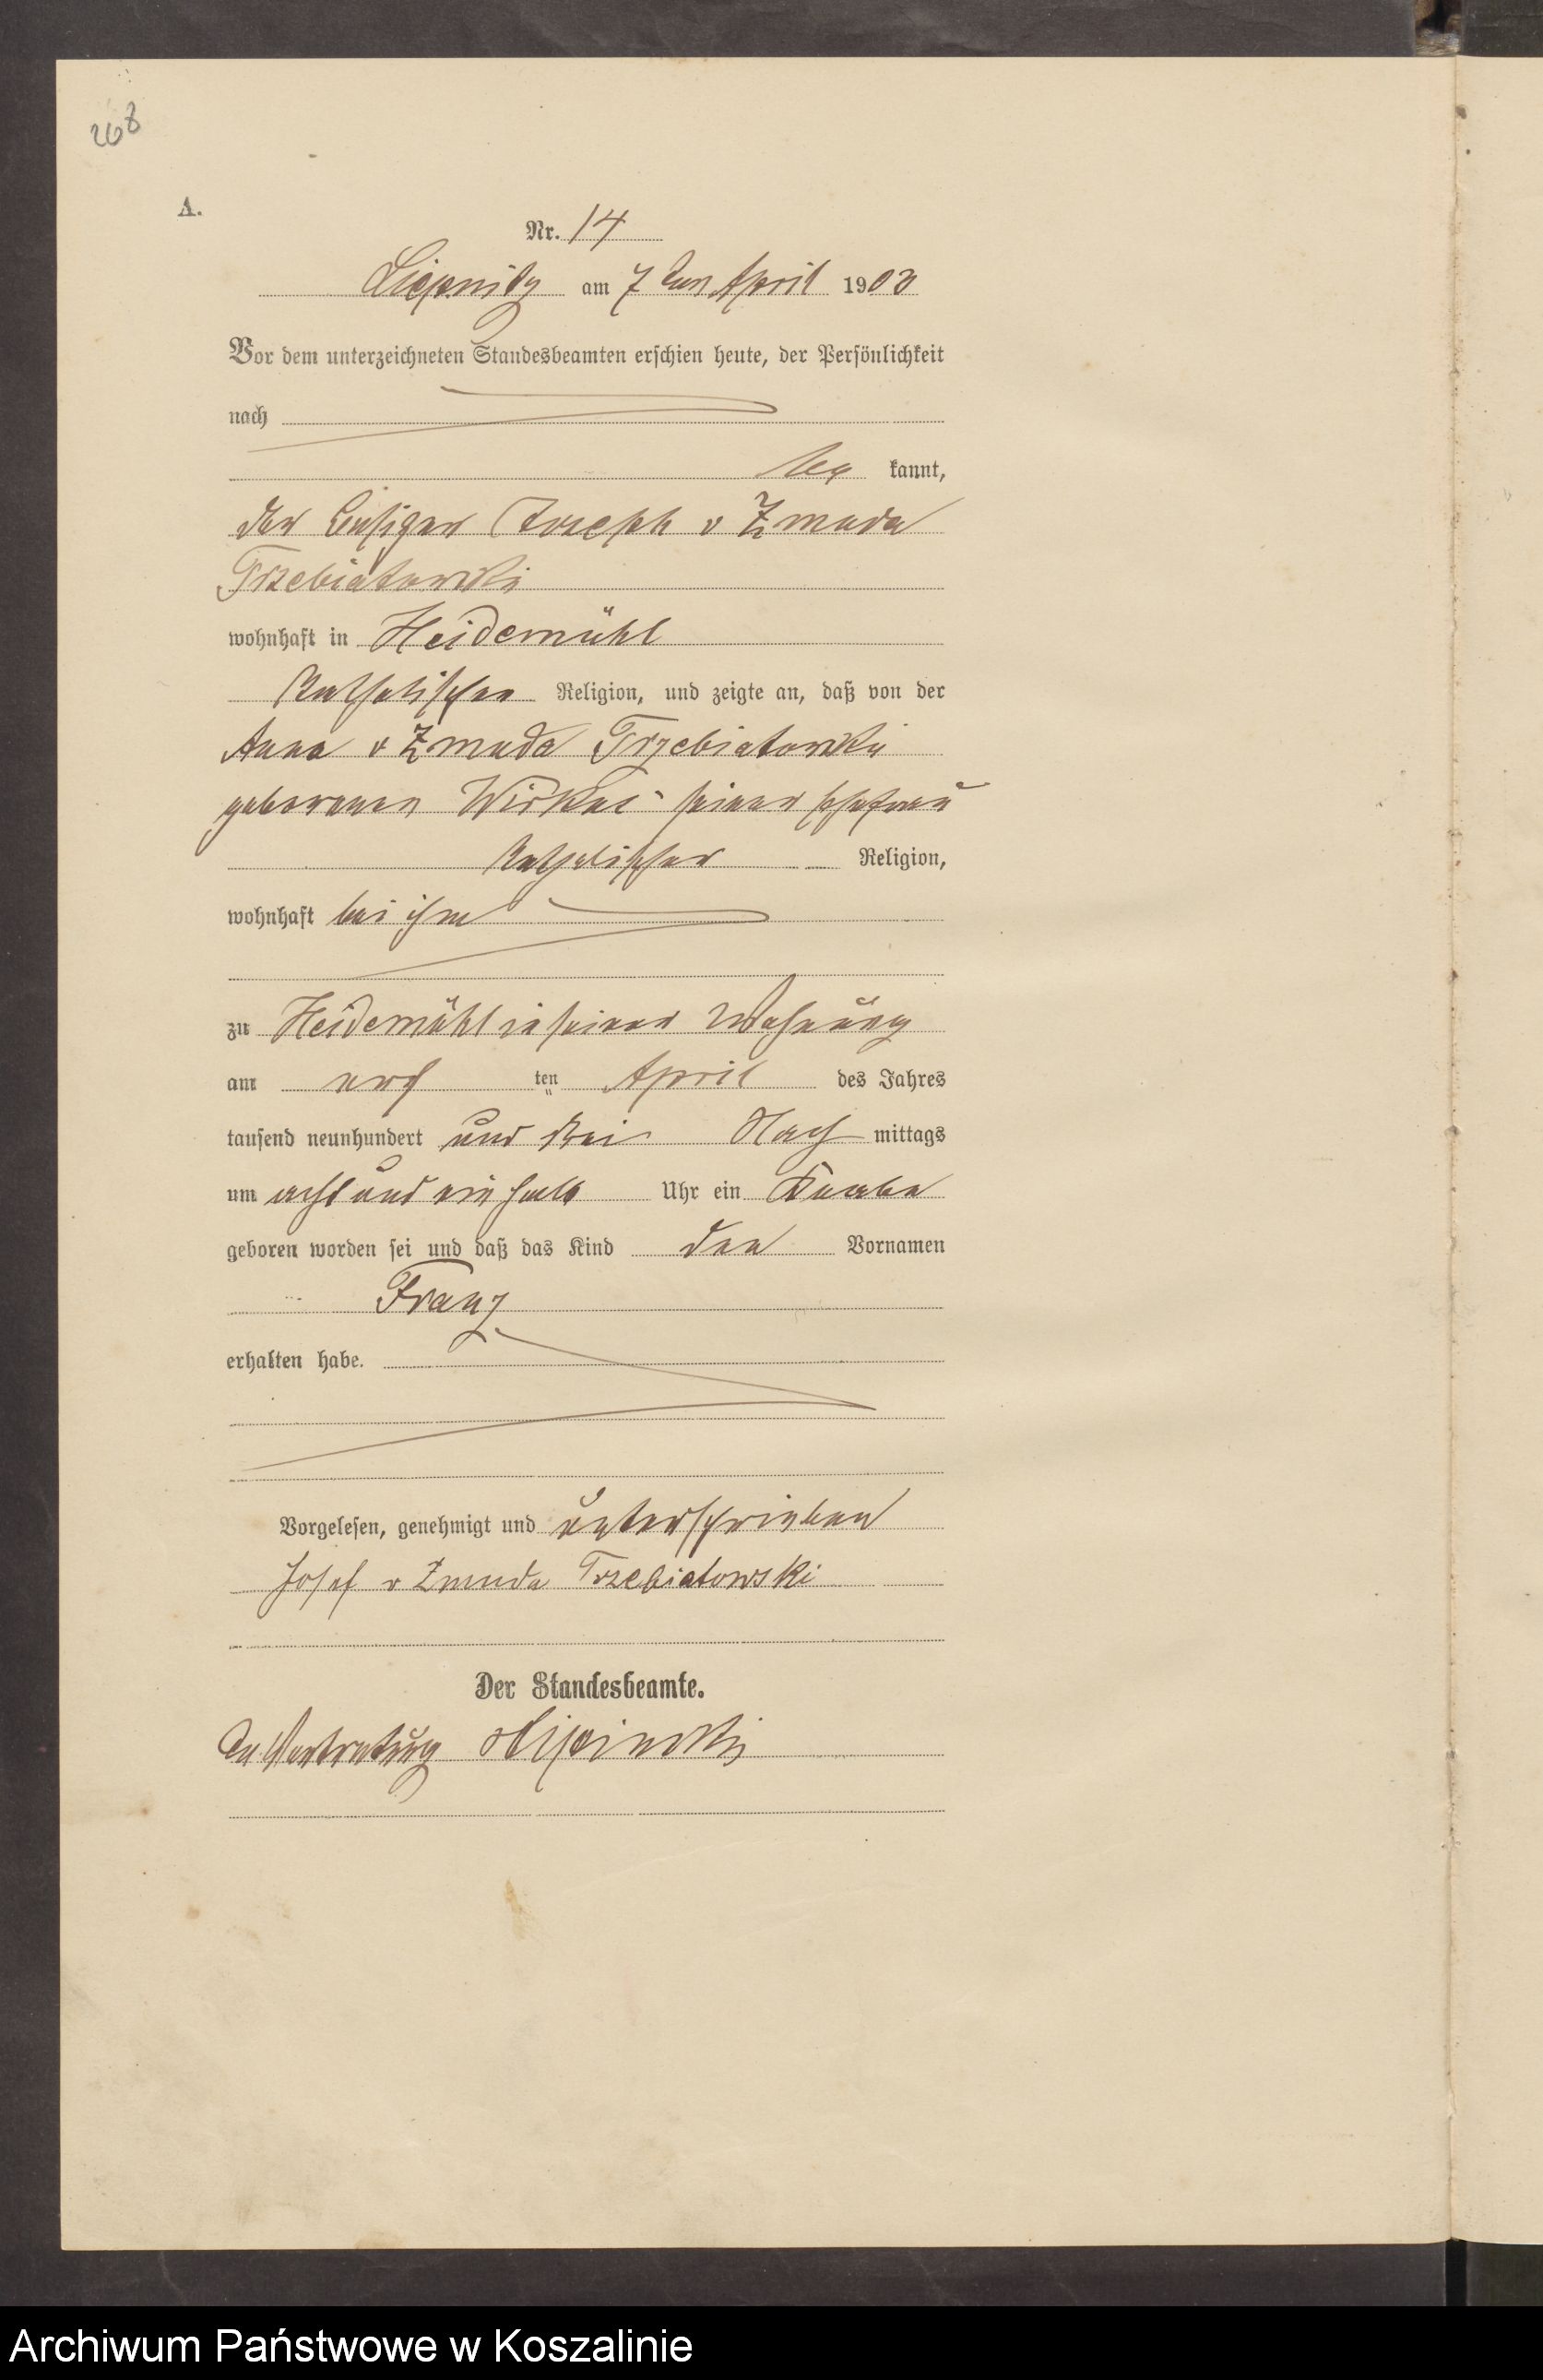 268
A.
Nr. 14
Liepnitz am 7ten April 1903
Vor dem unterzeichneten Standesbeamten erschien heute, der Persönlichkeit
nach
be kannt,
der Besitzer Joseph v Zmuda
Trzebiatowski
wohnhaft in Heidemühl
Katholischer Religion, und zeigte an, daß von der
Anna v Zmuda Trzebiatowski
geborenen Wirkus seiner Ehefrau
Katholischer Religion,
wohnhaft bei ihm
zu Heidemühl in seiner Wohnung
am ten April des Jahres
tausend neunhundert und drei Nach mittags
um acht und ein halb Uhr ein Knabe
geboren worden sei und daß das Kind den Vornamen
Franz
erhalten habe.
Vorgelesen, genehmigt und unterschrieben
Josef v Zmuda Trzebiatowski
Der Standesbeamte.
In Vertretung
Archiwum Państwowe w Koszalinie